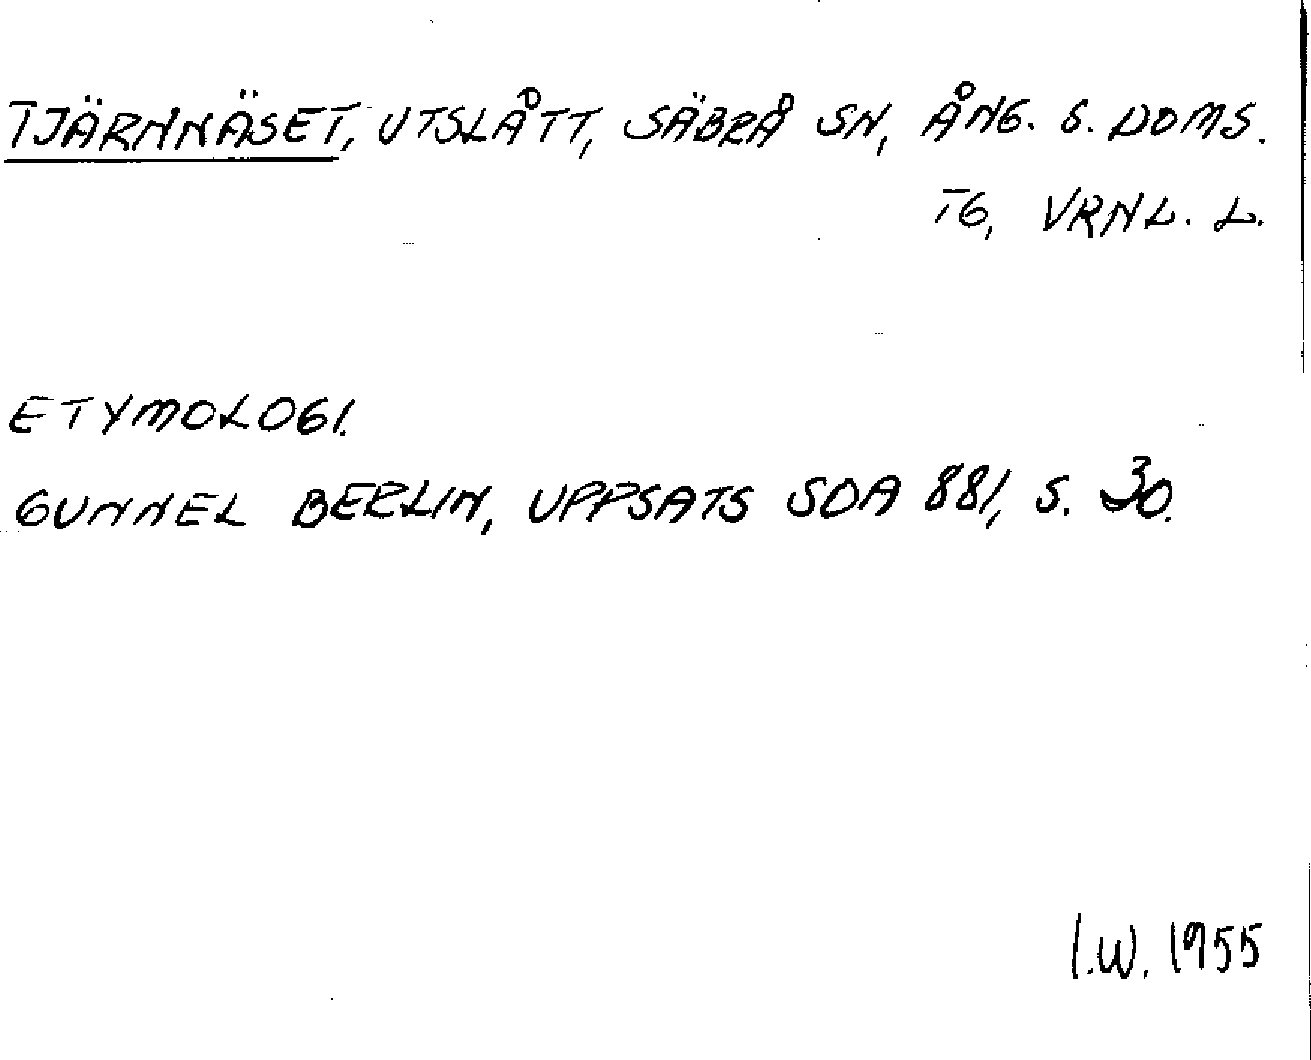 TJÄRNNÄSET, UTSLÅTT, SÄBRÅ SN, ÅNG. S. DOMS.
TG, VRNL. L.
ETYMOLOGI.
GUNNEL BERLIN, UPPSATS SOA 881, S. 30.
I.W. 1955